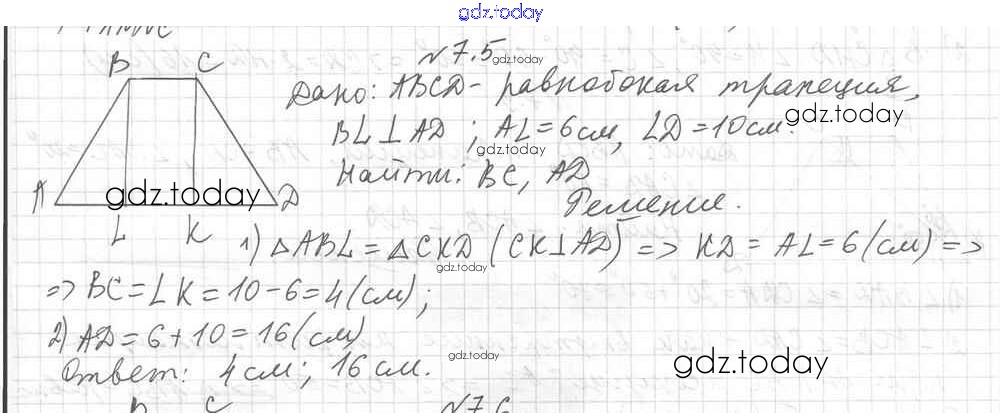 gdz.today
№7.5
gdz.today
B C
Дано: ABCD - равнобокая трапеция,
gdz.today
BL⊥AD ; AL=6см, LD=10см.
gdz.today
Найти: BC, AD
A gdz.today D
Решение.
L K
1) △ABL=△CKD (CK⊥AD) => KD = AL=6(см) =>
gdz.today
=> BC=LK=10-6=4(см);
2) AD=6+10=16(см)
gdz.today
gdz.today
Ответ: 4см; 16см.
B C №7.6